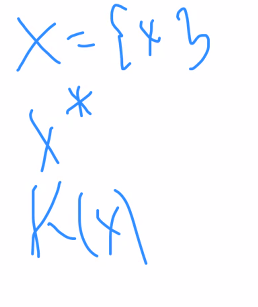 X = {x}
x*
K(x)